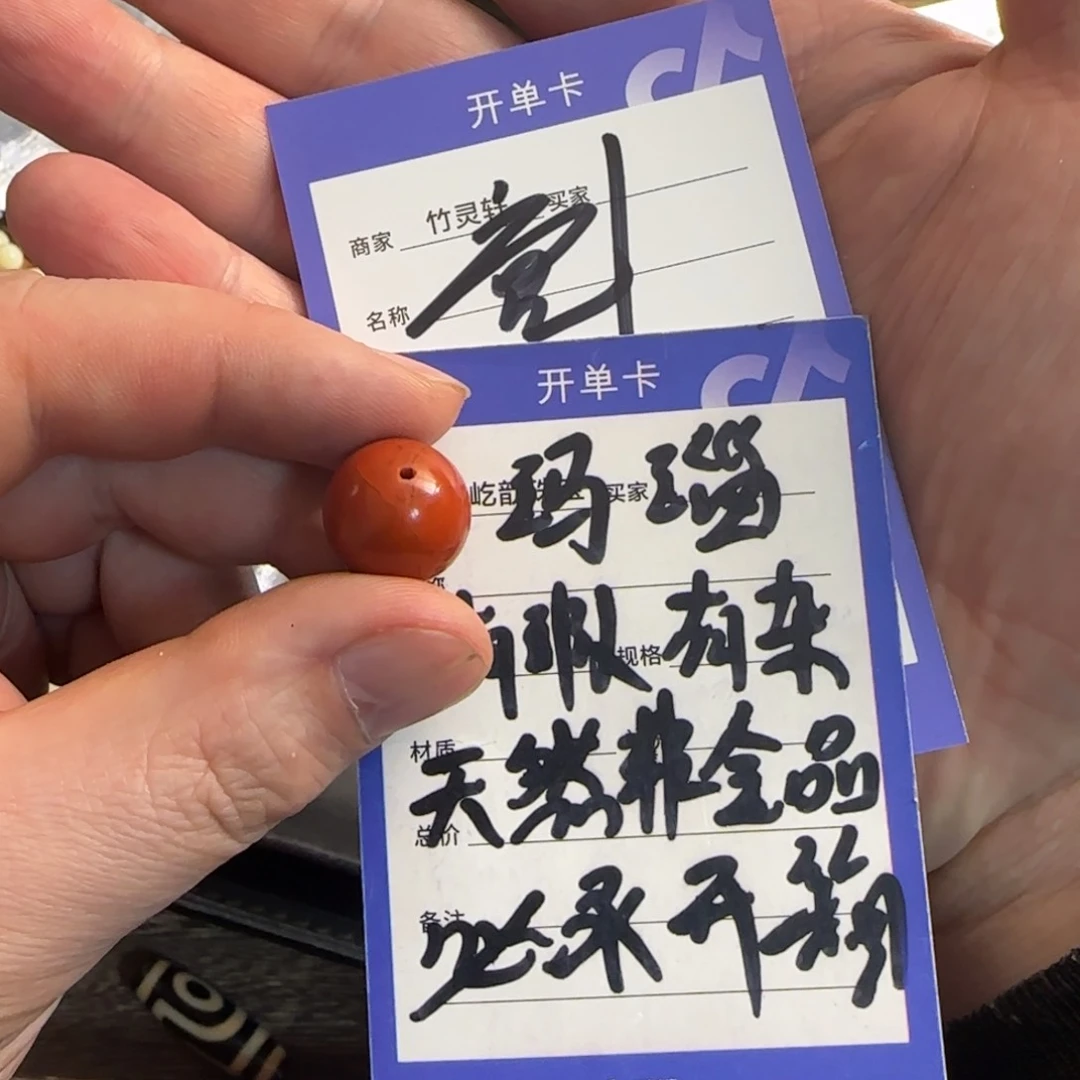 开单卡
商家 竹灵轩 买家
名称
开单卡
玛瑙
买家
有瑕有杂
规格
材质
天然非全品
总价
备注
必录开箱